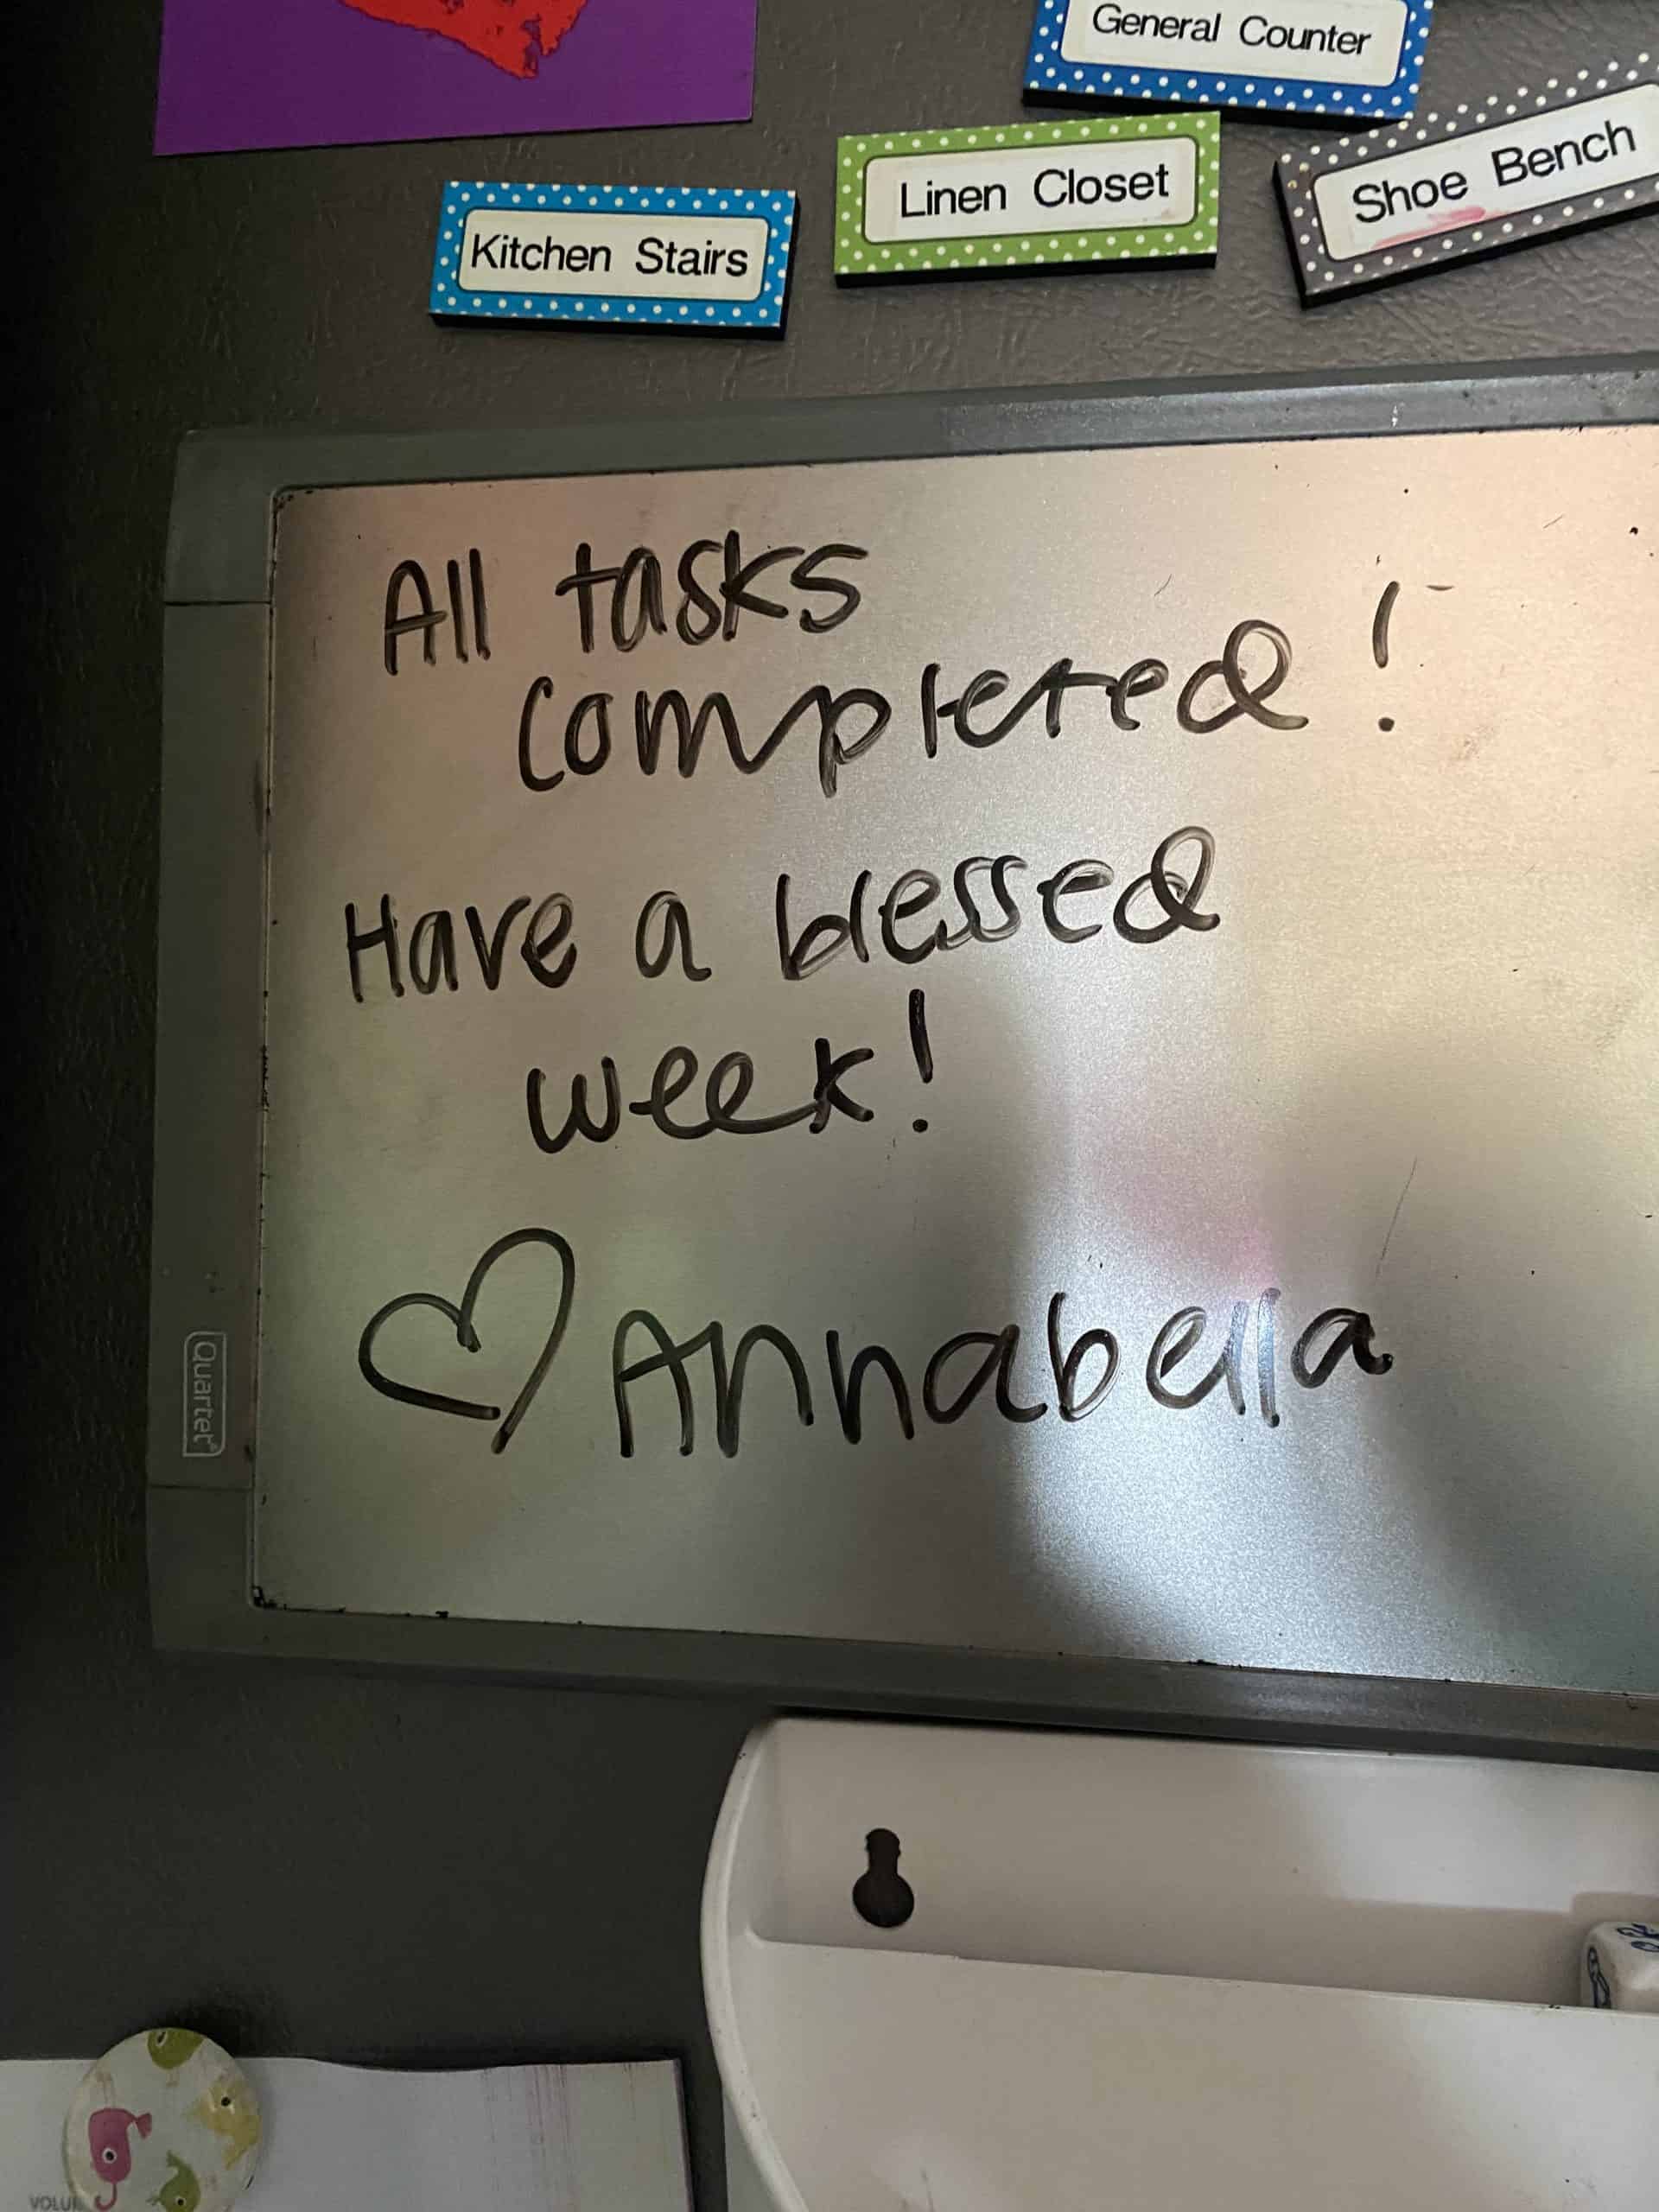 General Counter
Linen Closet
Shoe Bench
Kitchen Stairs
All tasks
completed!
Have a blessed
week!
Annabella
Quartet